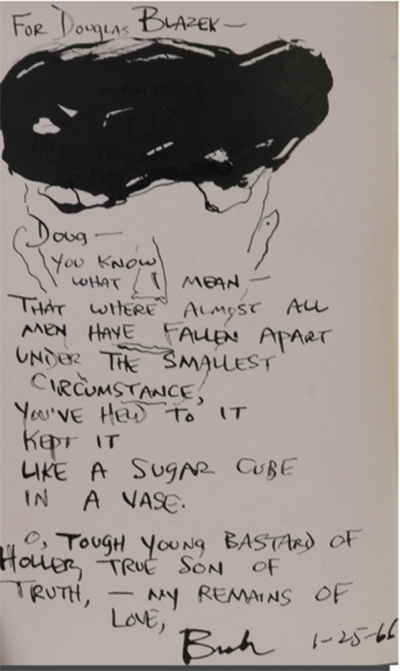 FOR DOUGLAS BLAZEK—
DOUG—
YOU KNOW
WHAT I MEAN—
THAT WHERE ALMOST ALL
MEN HAVE FALLEN APART
UNDER THE SMALLEST
CIRCUMSTANCE,
YOU'VE HELD TO IT
KEPT IT
LIKE A SUGAR CUBE
IN A VASE.
O, TOUGH YOUNG BASTARD OF
HOLLER, TRUE SON OF
TRUTH, — MY REMAINS OF
LOVE,
Buk 1-25-66